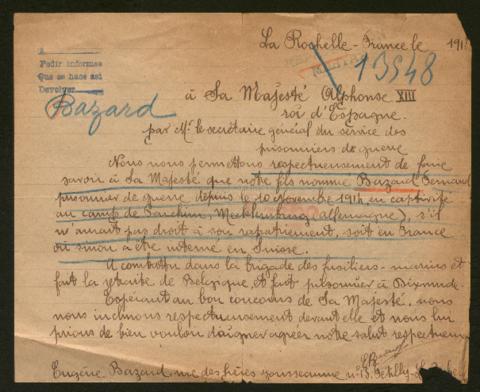 La Rochelle - France le 191
A
Pedir informes
Que se hace así
Devolver
13948
Bazard
à Sa Majesté Alphonse XIII
roi d'Espagne.
par Mr le secrétaire général du service des
prisonniers de guerre
Nous nous permettons respectueusement de faire
savoir à Sa Majesté que notre fils nommé Bazard Fernand
prisonnier de guerre depuis le 10 Novembre 1914 en captivité
au camp de Mecklembourg (Allemagne), s'il
n'aurait pas droit à son rapatriement, soit en France
ou sinon à être interné en Suisse.
A combattu dans la brigade des fusiliers-marins et
fait la retraite de Belgique et fait prisonnier à Dixmude.
Espérant au bon concours de Sa Majesté, nous
nous inclinons respectueusement devant elle et nous lui
prions de bien vouloir daigner agréer notre salut respectueux
Eugène Bazard, rue des frères nº 13